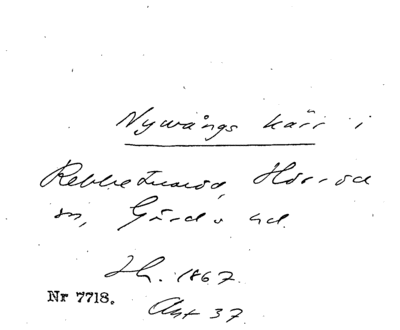 Nywångs kärr i
Rebbetuaröd, Hörröd
sn, Gärds hd.
Jh. 1867.
Nr 7718.
Akt 37